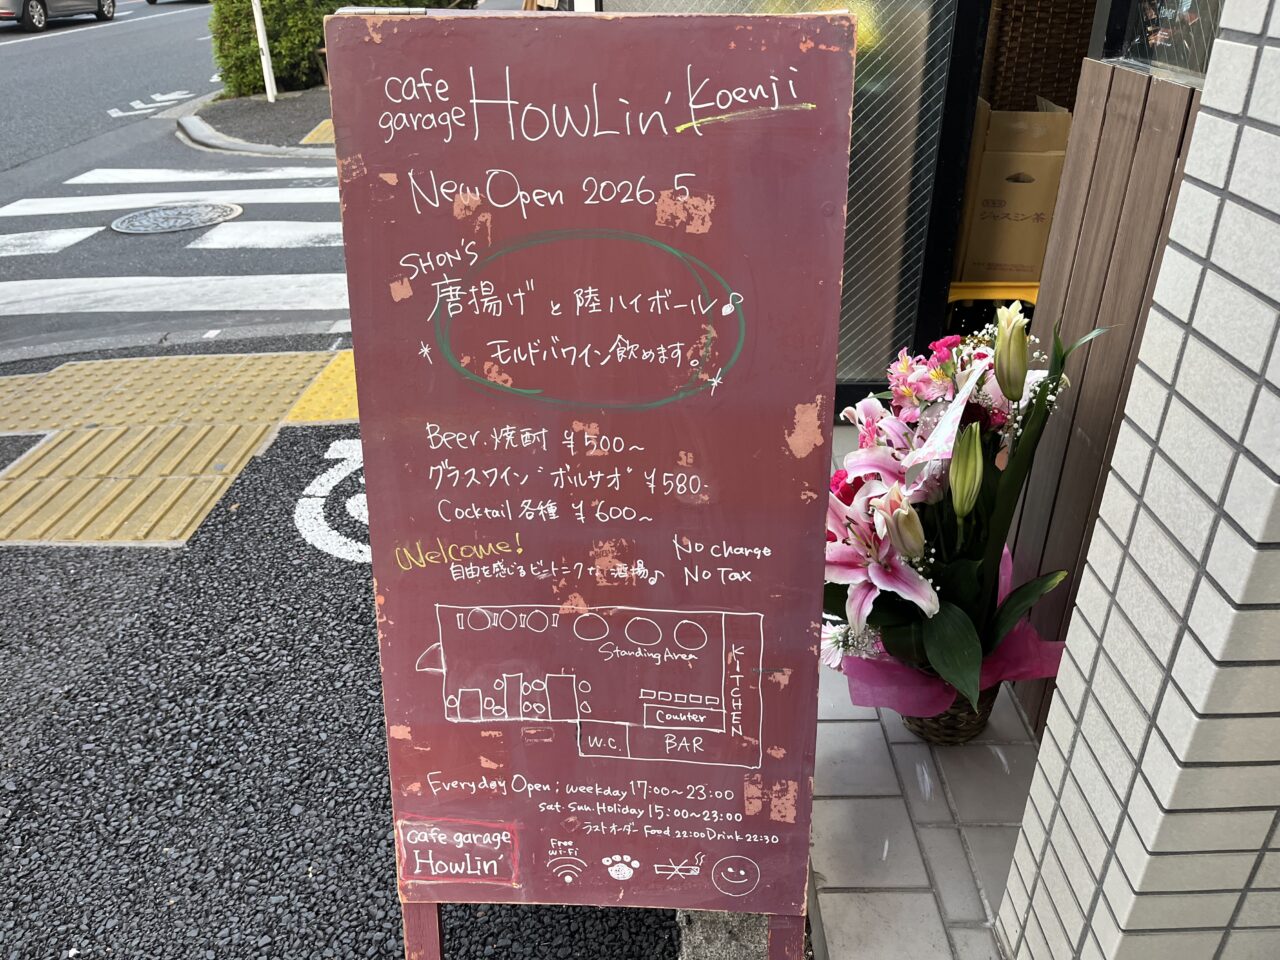 cafe garage HowLin' Koenji
New Open 2026.5
SHON'S
唐揚げと陸ハイボール♪
* モルドバワイン飲めます。*
Beer.焼酎 ¥500～
グラスワイン"ボルサオ" ¥580-
Cocktail 各種 ¥600～
Welcome!
自由を感じるビートニクな酒場♪
No charge
No Tax
Standing Area
KITCHEN
Counter
W.C.
BAR
Everyday Open; weekday 17:00～23:00
sat.sun.Holiday 15:00～23:00
ラストオーダー Food 22:00 Drink 22:30
cafe garage
HowLin'
Free
Wi-Fi
ジャスミン茶